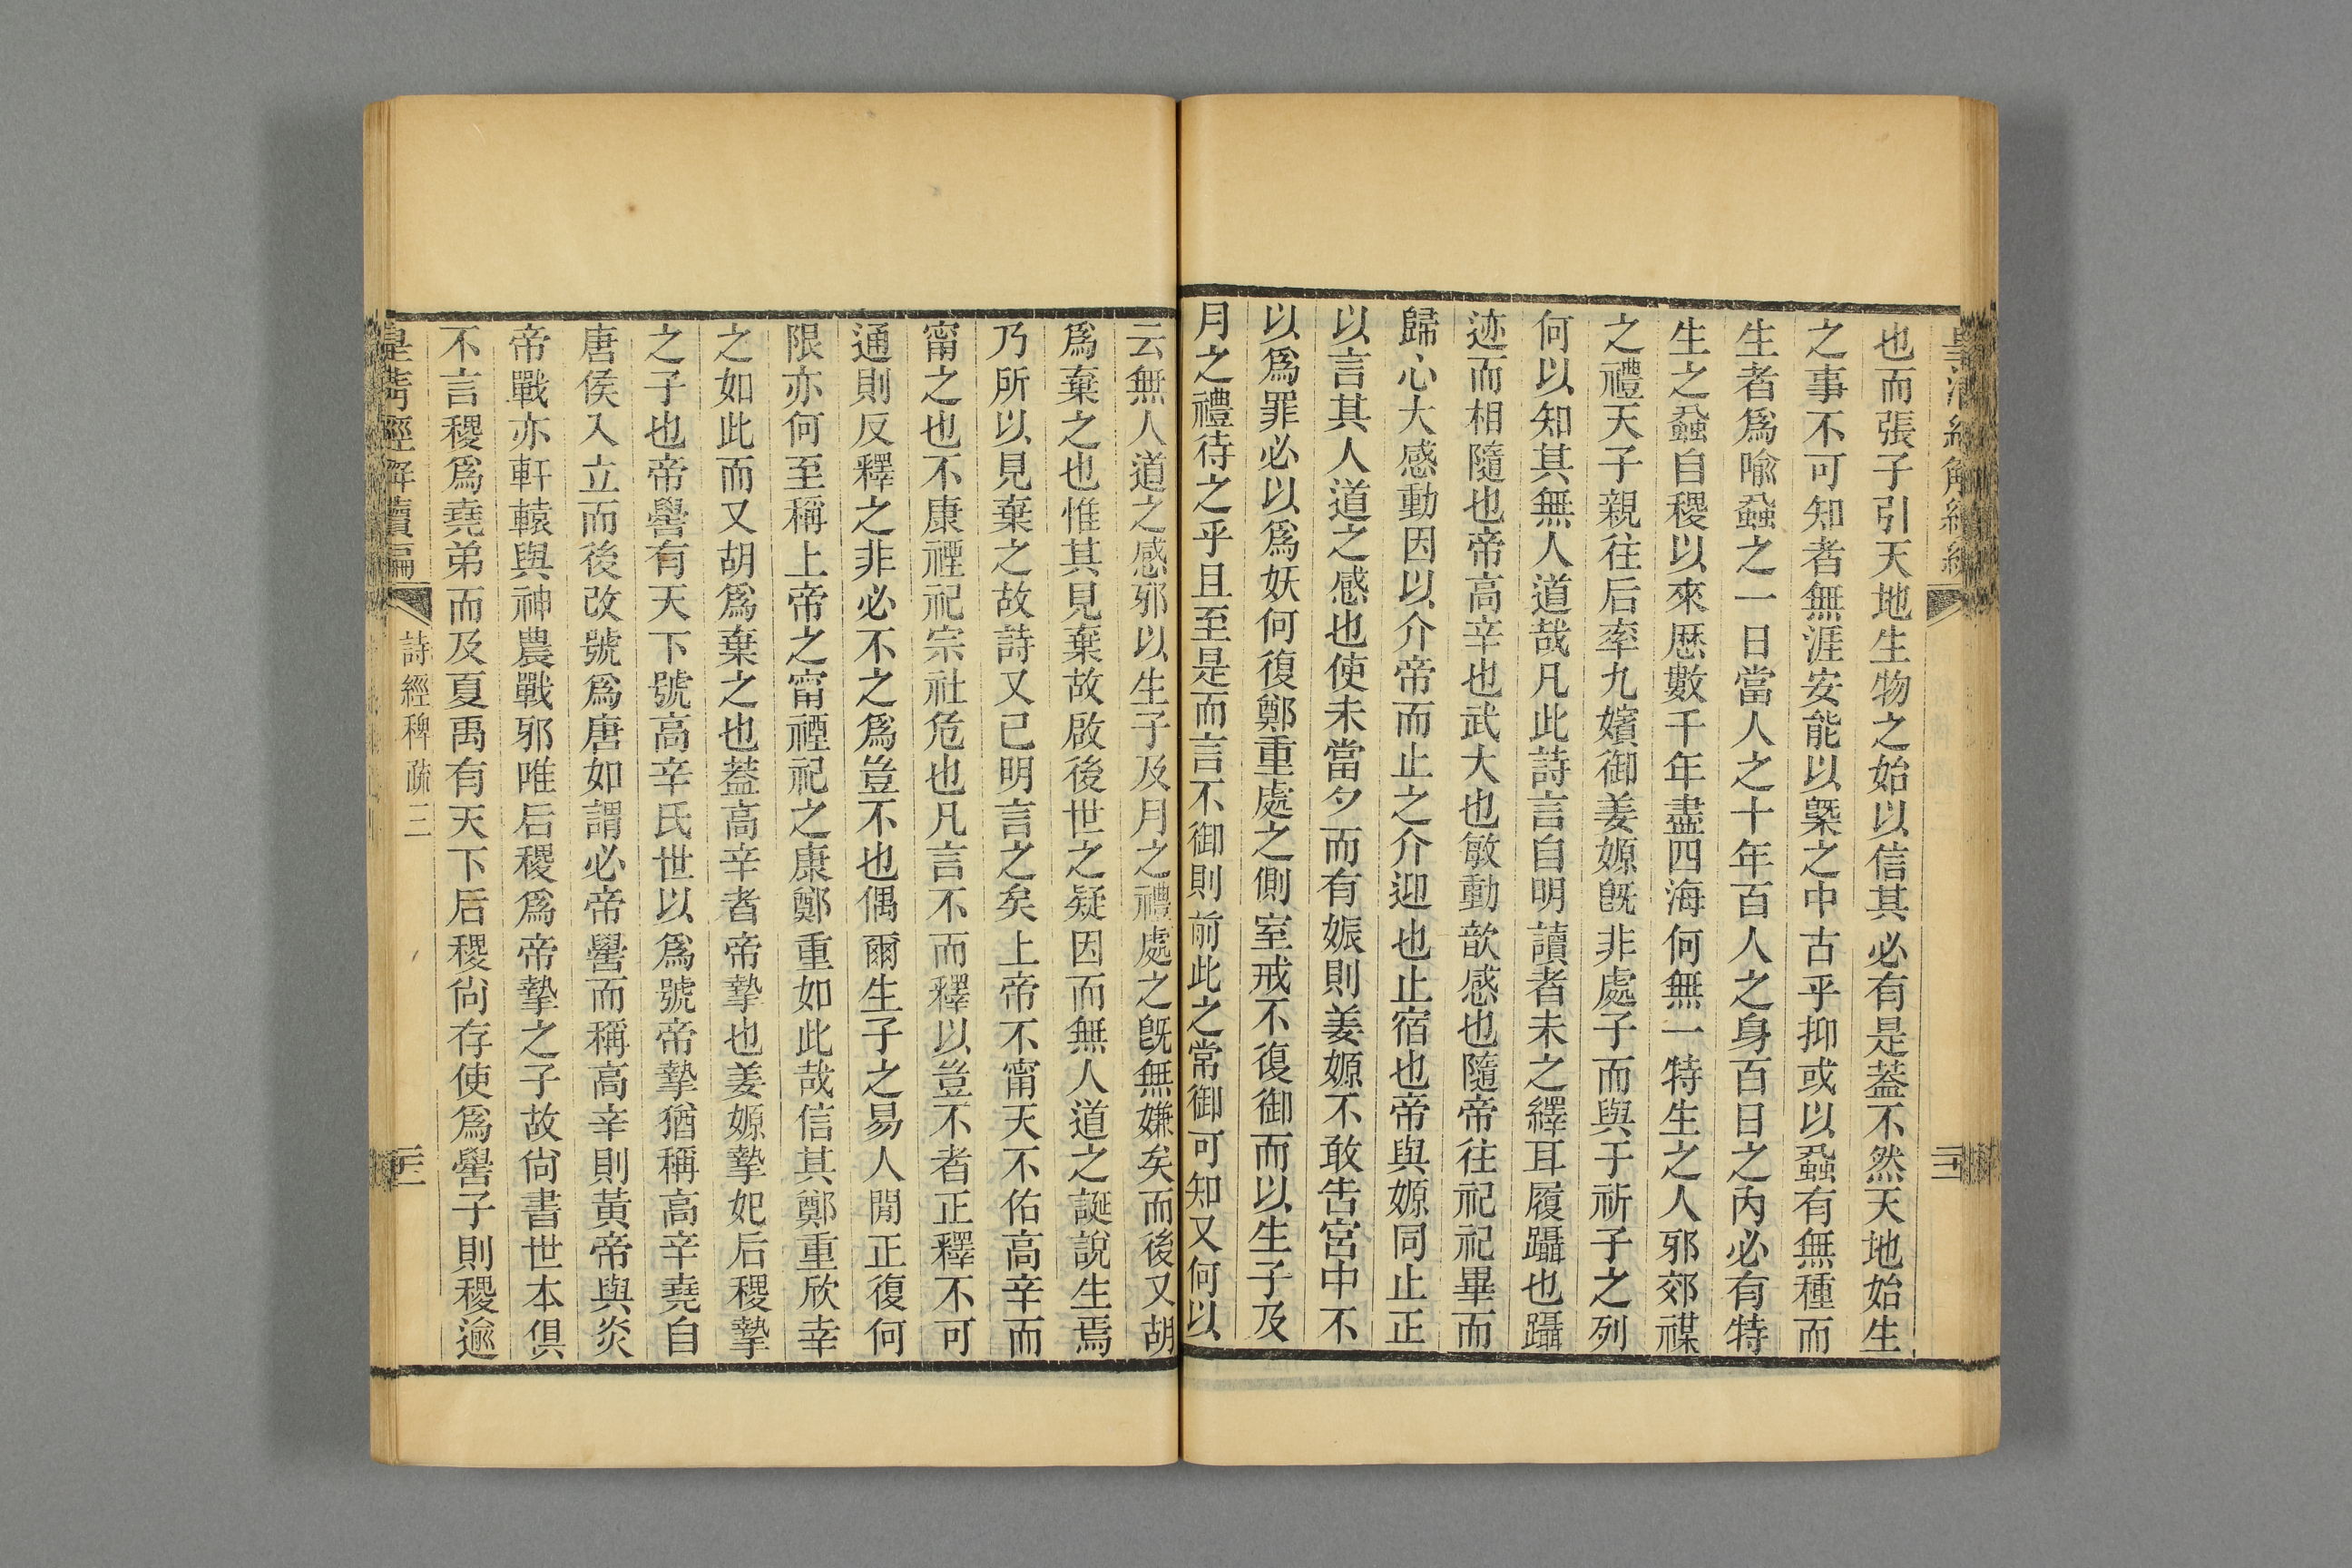 也而張子引天地生物之始以信其必有是蓋不然天地始生
之事不可知者無涯安能以槩之中古乎抑或以蝨有無種而
生者爲喩蝨之一日當人之十年百人之身百日之內必有特
生之蝨自稷以來歷數千年盡四海何無一特生之人邪郊禖
之禮天子親往后率九嬪御姜嫄旣非處子而與于祈子之列
何以知其無人道哉凡此詩言自明讀者未之繹耳履躡也躡
迹而相隨也帝高辛也武大也敏動歆感也隨帝往祀祀畢而
歸心大感動因以介帝而止之介迎也止宿也帝與嫄同止正
以言其人道之感也使未當夕而有娠則姜嫄不敢告宮中不
以爲罪必以爲妖何復鄭重處之側室戒不復御而以生子及
月之禮待之乎且至是而言不御則前此之常御可知又何以
云無人道之感邪以生子及月之禮處之旣無嫌矣而後又胡
爲棄之也惟其見棄故啟後世之疑因而無人道之誕說生焉
乃所以見棄之故詩又已明言之矣上帝不甯天不佑高辛而
甯之也不康禋祀宗社危也凡言不而釋以豈不者正釋不可
通則反釋之非必不之爲豈不也偶爾生子之易人閒正復何
限亦何至稱上帝之甯禋祀之康鄭重如此哉信其鄭重欣幸
之如此而又胡爲棄之也蓋高辛者帝摯也姜嫄摯妃后稷摯
之子也帝嚳有天下號高辛氏世以爲號帝摯猶稱高辛堯自
唐侯入立而後改號爲唐如謂必帝嚳而稱高辛則黃帝與炎
帝戰亦軒轅與神農戰邪唯后稷爲帝摯之子故尙書世本俱
不言稷爲堯弟而及夏禹有天下后稷尙存使爲嚳子則稷逾
皇淸經解續編
詩經稗疏三